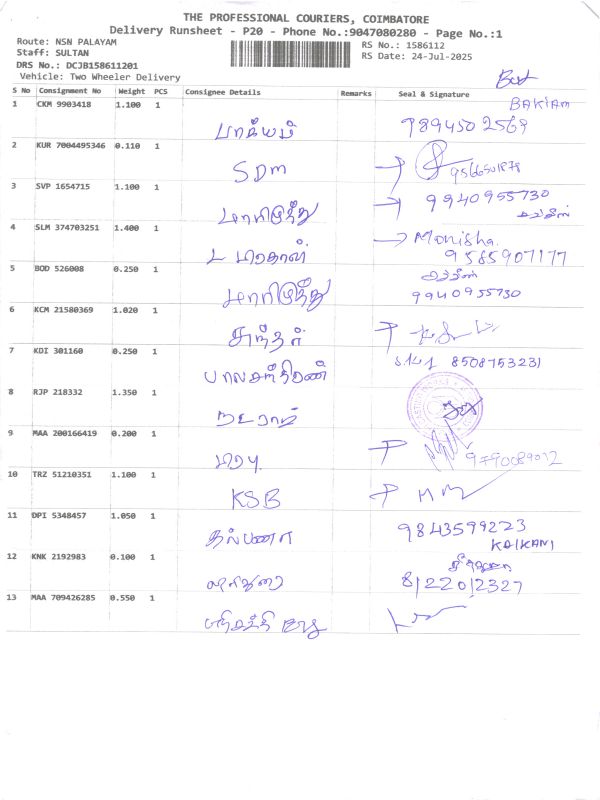 THE PROFESSIONAL COURIERS, COIMBATORE
Delivery Runsheet - P20 - Phone No.:9047080280 - Page No.:1
Route: NSN PALAYAM
RS No.: 1586112
Staff: SULTAN
RS Date: 24-Jul-2025
DRS No.: DCJB158611201
Vehicle: Two Wheeler Delivery
S No Consignment No Weight PCS Consignee Details Remarks Seal & Signature
BAKIAM
1 CKM 9903418 1.100 1
பாக்யம் 9894502569
2 KUR 7004495346 0.110 1
SDM
3 SVP 1654715 1.100 1
மாரிமுத்து 9940955730
4 SLM 374703251 1.400 1
Monisha.
9585907177
5 BOD 526008 0.250 1
மாரிமுத்து 9940955730
6 KCM 21580369 1.020 1
சுந்தர்
7 KDI 301160 0.250 1
8508753231
பாலசந்திரன்
8 RJP 218332 1.350 1
நடராஜ்
9 MAA 200166419 0.200 1
9790089012
10 TRZ 51210351 1.100 1
KSB
11 DPI 5348457 1.050 1
9843599223
KAIKANI
கல்பனா
12 KNK 2192983 0.100 1
8122012327
13 MAA 709426285 0.550 1